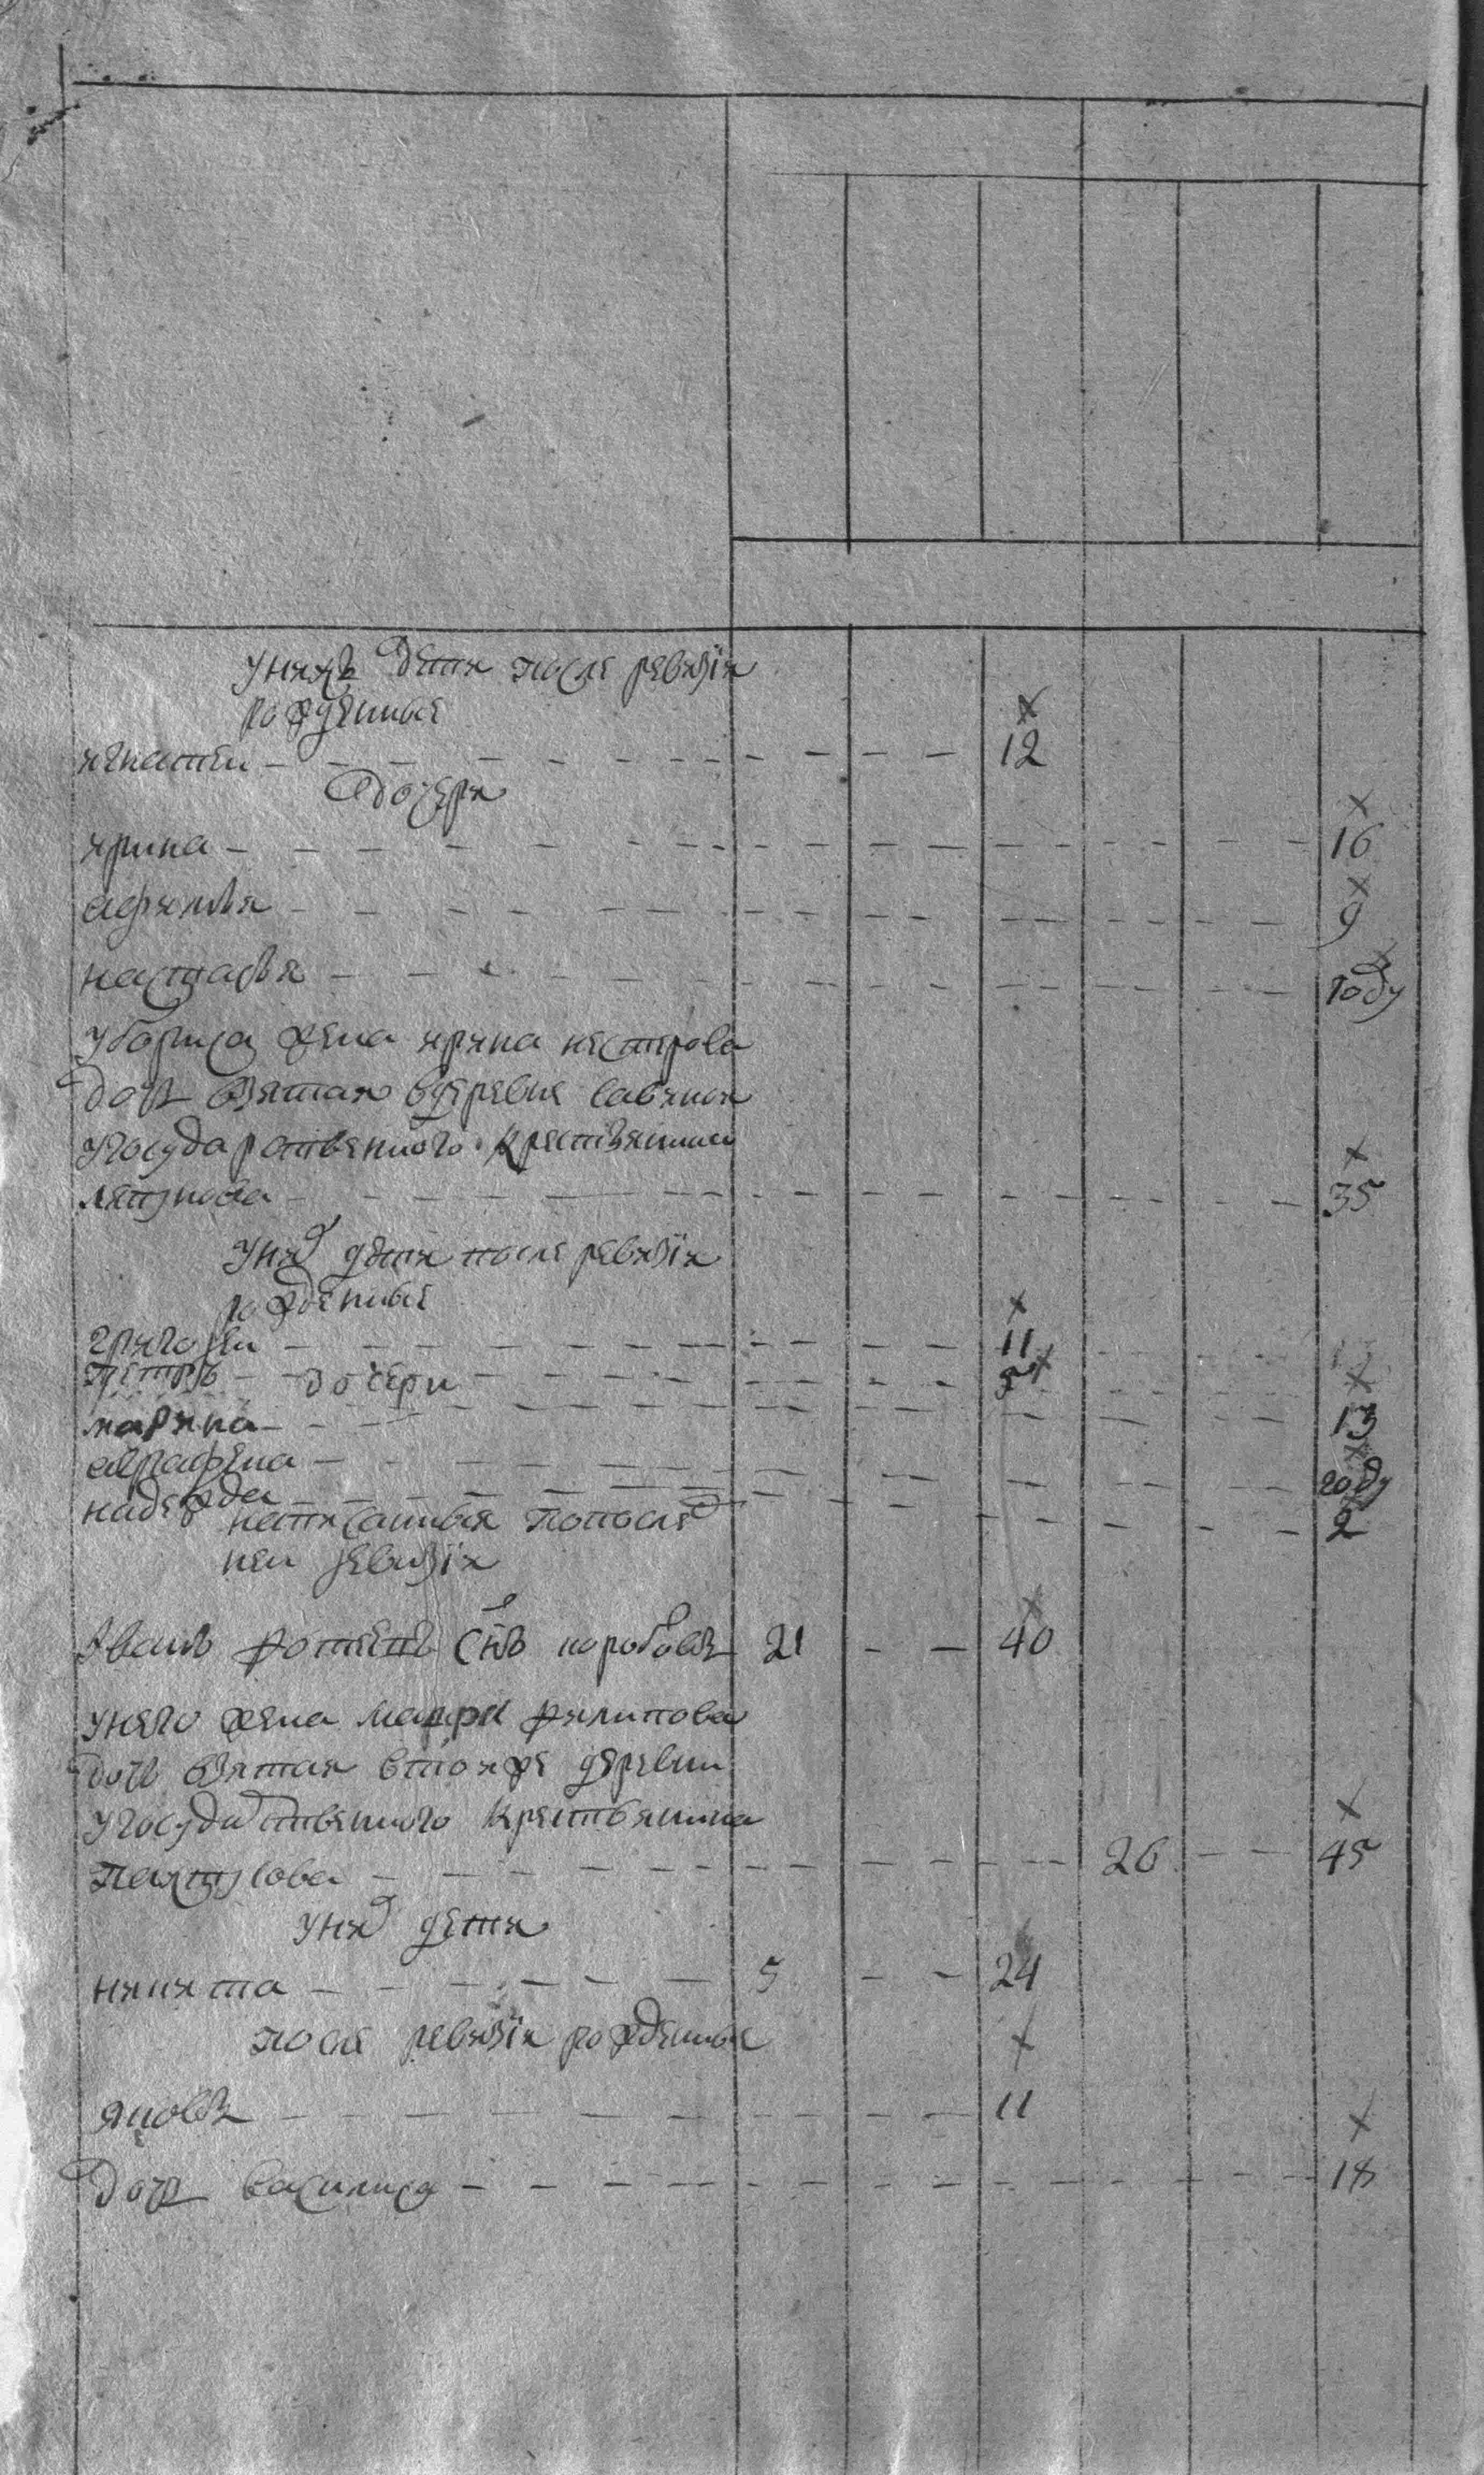 унихъ дети после ревизiи
рожденные
игнатеи — 12
дочери
ирина — 16
афимья — 9
настасья — году
убориса жена ирина нестерова
дочь взятая вдеревне савиной
угосударственного крестьянина
—  35
унид дети после ревизiи
рожденные
григореи — 11
петръ — 5
дочери
марина — 13
аграфена — году
надежда — 2
написанныя попослед
ней ревизiи
Иванъ фотѣевъ снъ коробовъ 21 — — 40
унего жена марфа филипова
дочь взятая втоиже деревни
угосударственного крестьянина
— 26 — — 45
унид дети
никита — 5 — — 24
после ревизiи рожденные
яковъ — 11
дочь василиса — 18